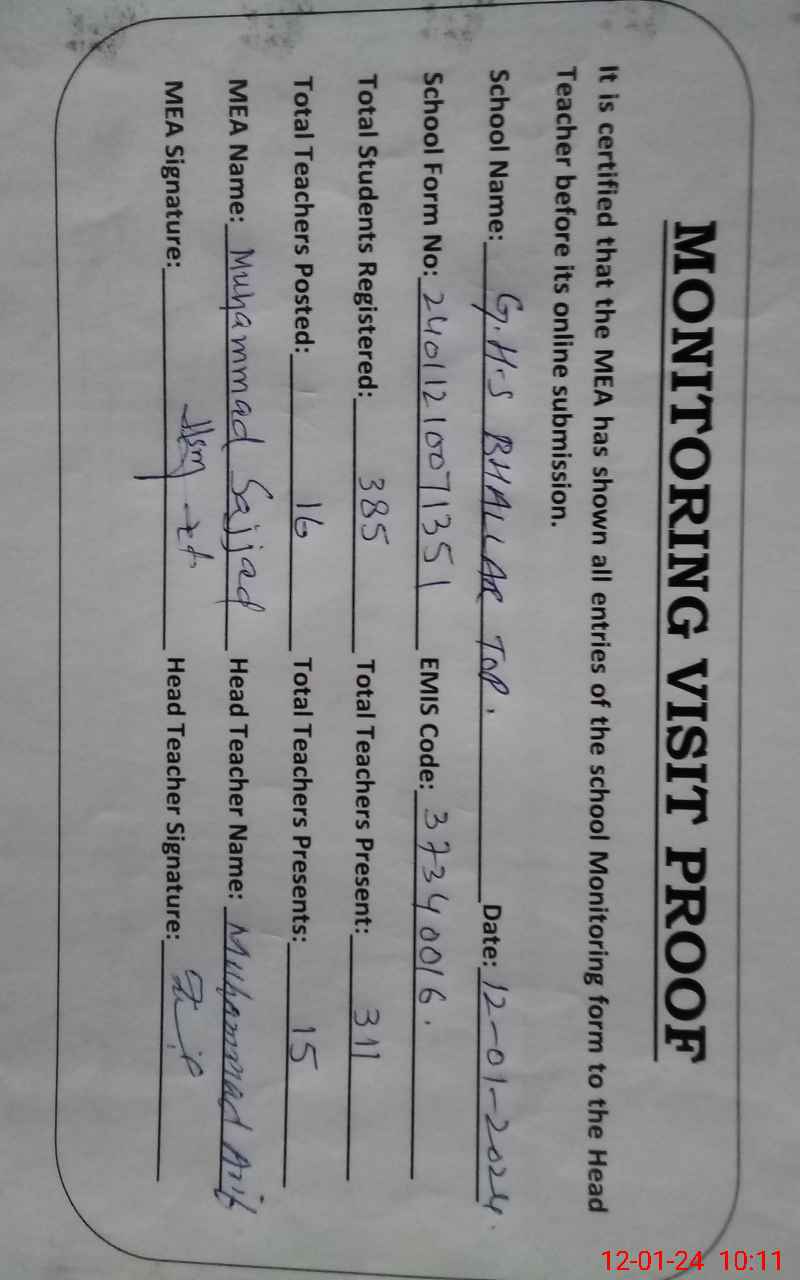 MONITORING VISIT PROOF
It is certified that the MEA has shown all entries of the school Monitoring form to the Head
Teacher before its online submission.
School Name: G.H.S BHALLAR TOP. Date: 12-01-2024.
School Form No: 24011210071351 EMIS Code: 37340016.
Total Students Registered: 385 Total Teachers Present: 311
Total Teachers Posted: 16 Total Teachers Presents: 15
MEA Name: Muhammad Sajjad Head Teacher Name: Muhammad Arif
MEA Signature: Head Teacher Signature:
12-01-24 10:11